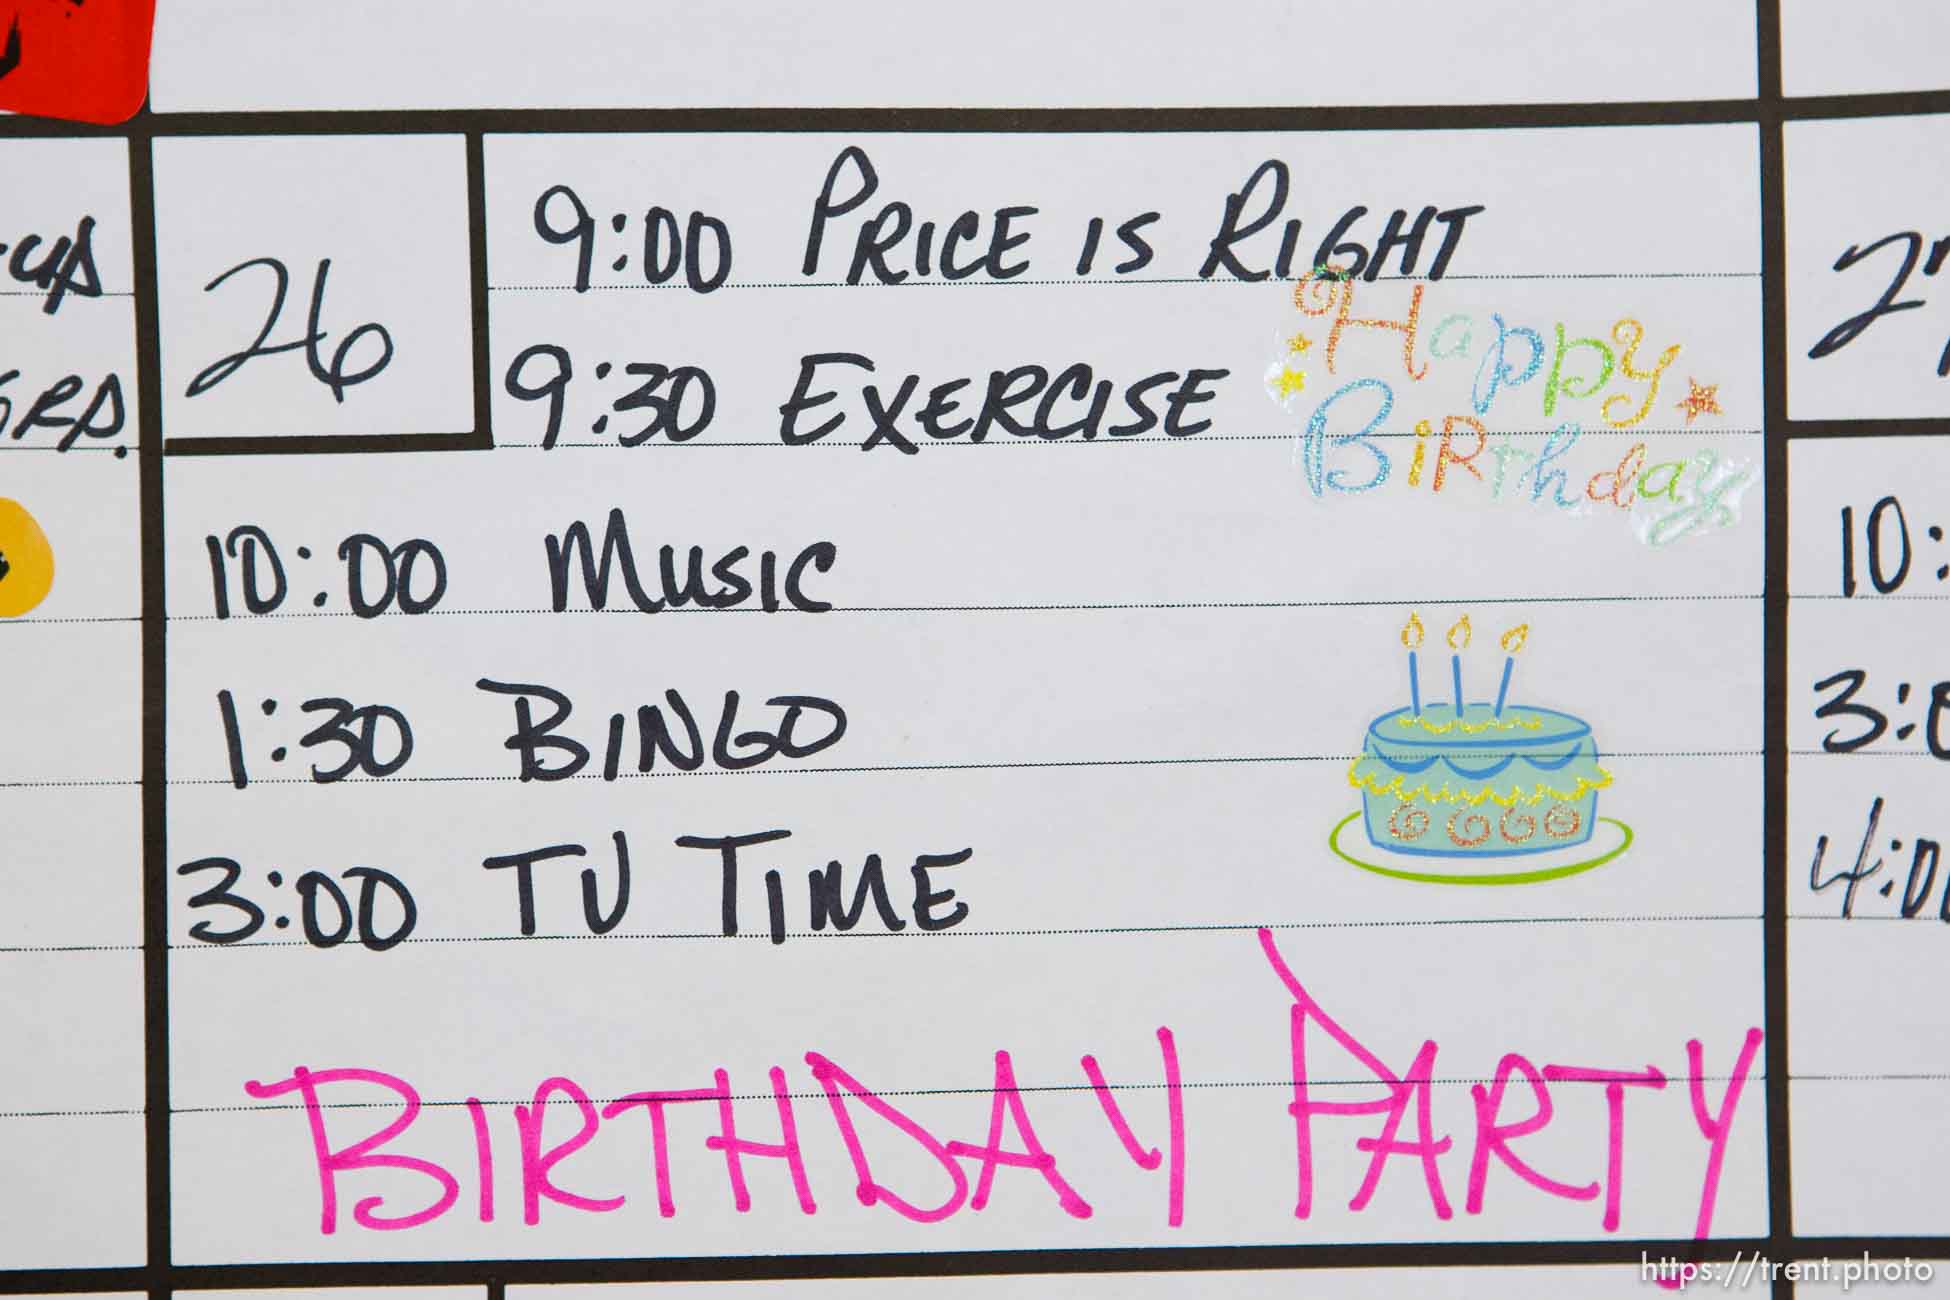 26
9:00 PRICE IS RIGHT
9:30 EXERCISE
Happy
BiRthday
10:00 MUSIC
1:30 BINGO
3:00 TV TIME
BIRTHDAY PARTY
10:
3:0
4:00
https://trent.photo